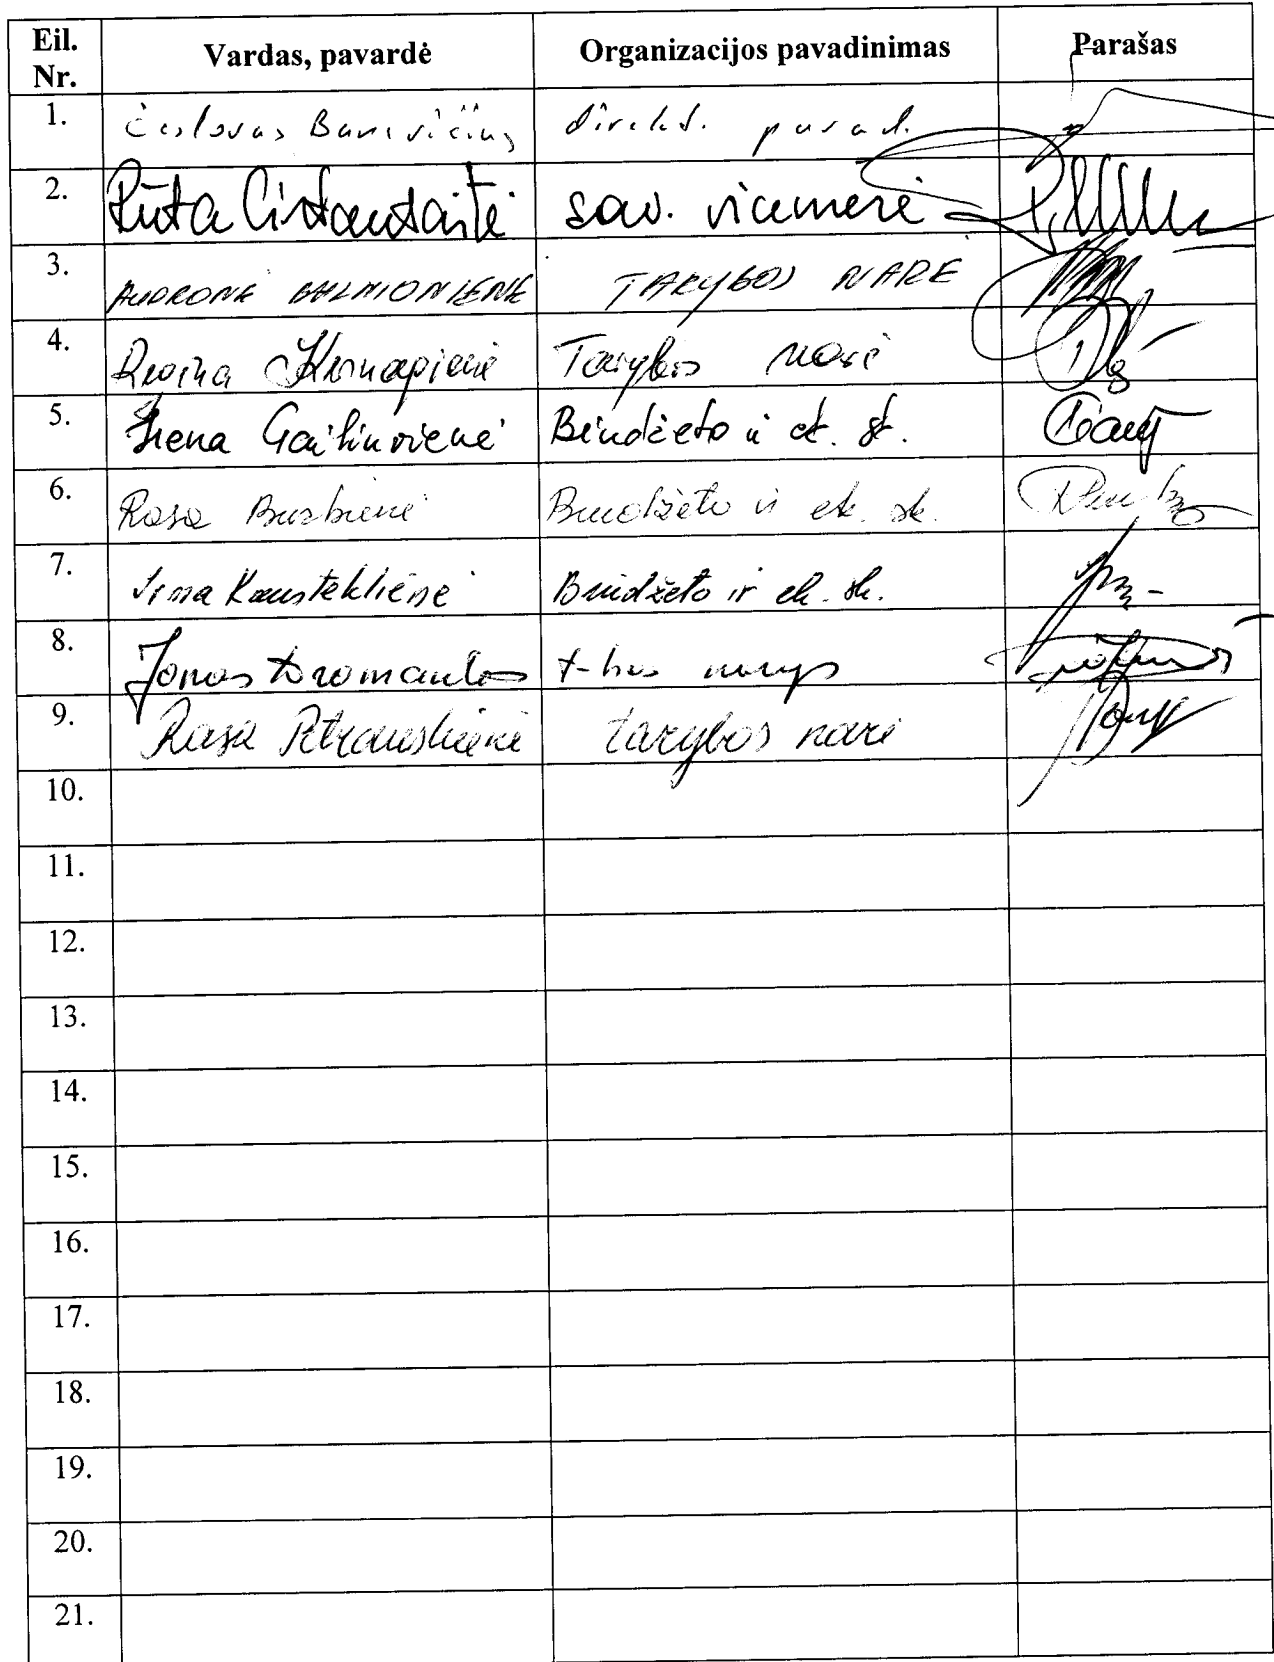 Eil. Nr. Vardas, pavardė Organizacijos pavadinimas Parašas
1. Česlovas Banevičius direkt. pavad.
2. Rūta Cirtautaitė sav. vicemerė
3. AUDRONĖ BALNIONIENĖ TARYBOS NARĖ
4. Regina Tarybos narė
5. Irena Gailiuvienė Biudžeto ir ek. sk.
6. Rasa Burbienė Biudžeto ir ek. sk.
7. Irma Biudžeto ir ek. sk.
8. Jonas Dromantas t-bos narys
9. Rasa Petrauskienė tarybos narė
10.
11.
12.
13.
14.
15.
16.
17.
18.
19.
20.
21.